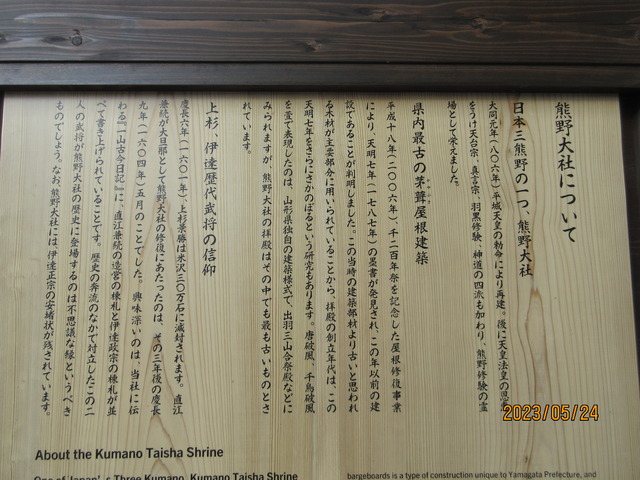 熊野大社について
日本三熊野の一つ、熊野大社
大同元年（八〇六年）平城天皇の勅命により再建。後に天皇法皇の恩恵
をうけ天台宗、真言宗、羽黒修験、神道の四派も加わり、熊野修験の霊
場として栄えました。
県内最古の茅葺屋根建築
平成十八年（二〇〇六年）、千二百年祭を記念した屋根修復事業
により、天明七年（一七八七年）の墨書が発見され、この年以前の建
設であることが判明しました。この当時の建築部材より古いと思われ
る木材が主要部分に用いられていることから、拝殿の創立年代は、この
天明七年をさらにさかのぼるという研究もあります。唐破風、千鳥破風
を萱で表現したのは、山形県独自の建築様式で、出羽三山合祭殿などに
みられますが、熊野大社の拝殿はその中でも最も古いものとさ
れています。
上杉、伊達歴代武将の信仰
慶長六年（一六〇一年）、上杉景勝は米沢三〇万石に減封されます。直江
兼続が大旦那として熊野大社の修復にあたったのは、その三年後の慶長
九年（一六〇四年）五月のことでした。興味深いのは、当社に伝
わる『一山古今日記』に、直江兼続の造営の棟札と伊達政宗の棟札が並
べて書き上げられていることです。歴史の奔流のなかで対立したこの二
人の武将が熊野大社の歴史に登場するのは不思議な縁というべき
ものでしょう。なお、熊野大社には、伊達正宗の安堵状が残されています。
About the Kumano Taisha Shrine
One of Japan's Three Kumano, Kumano Taisha Shrine
bargeboards is a type of construction unique to Yamagata Prefecture, and
2023/05/24